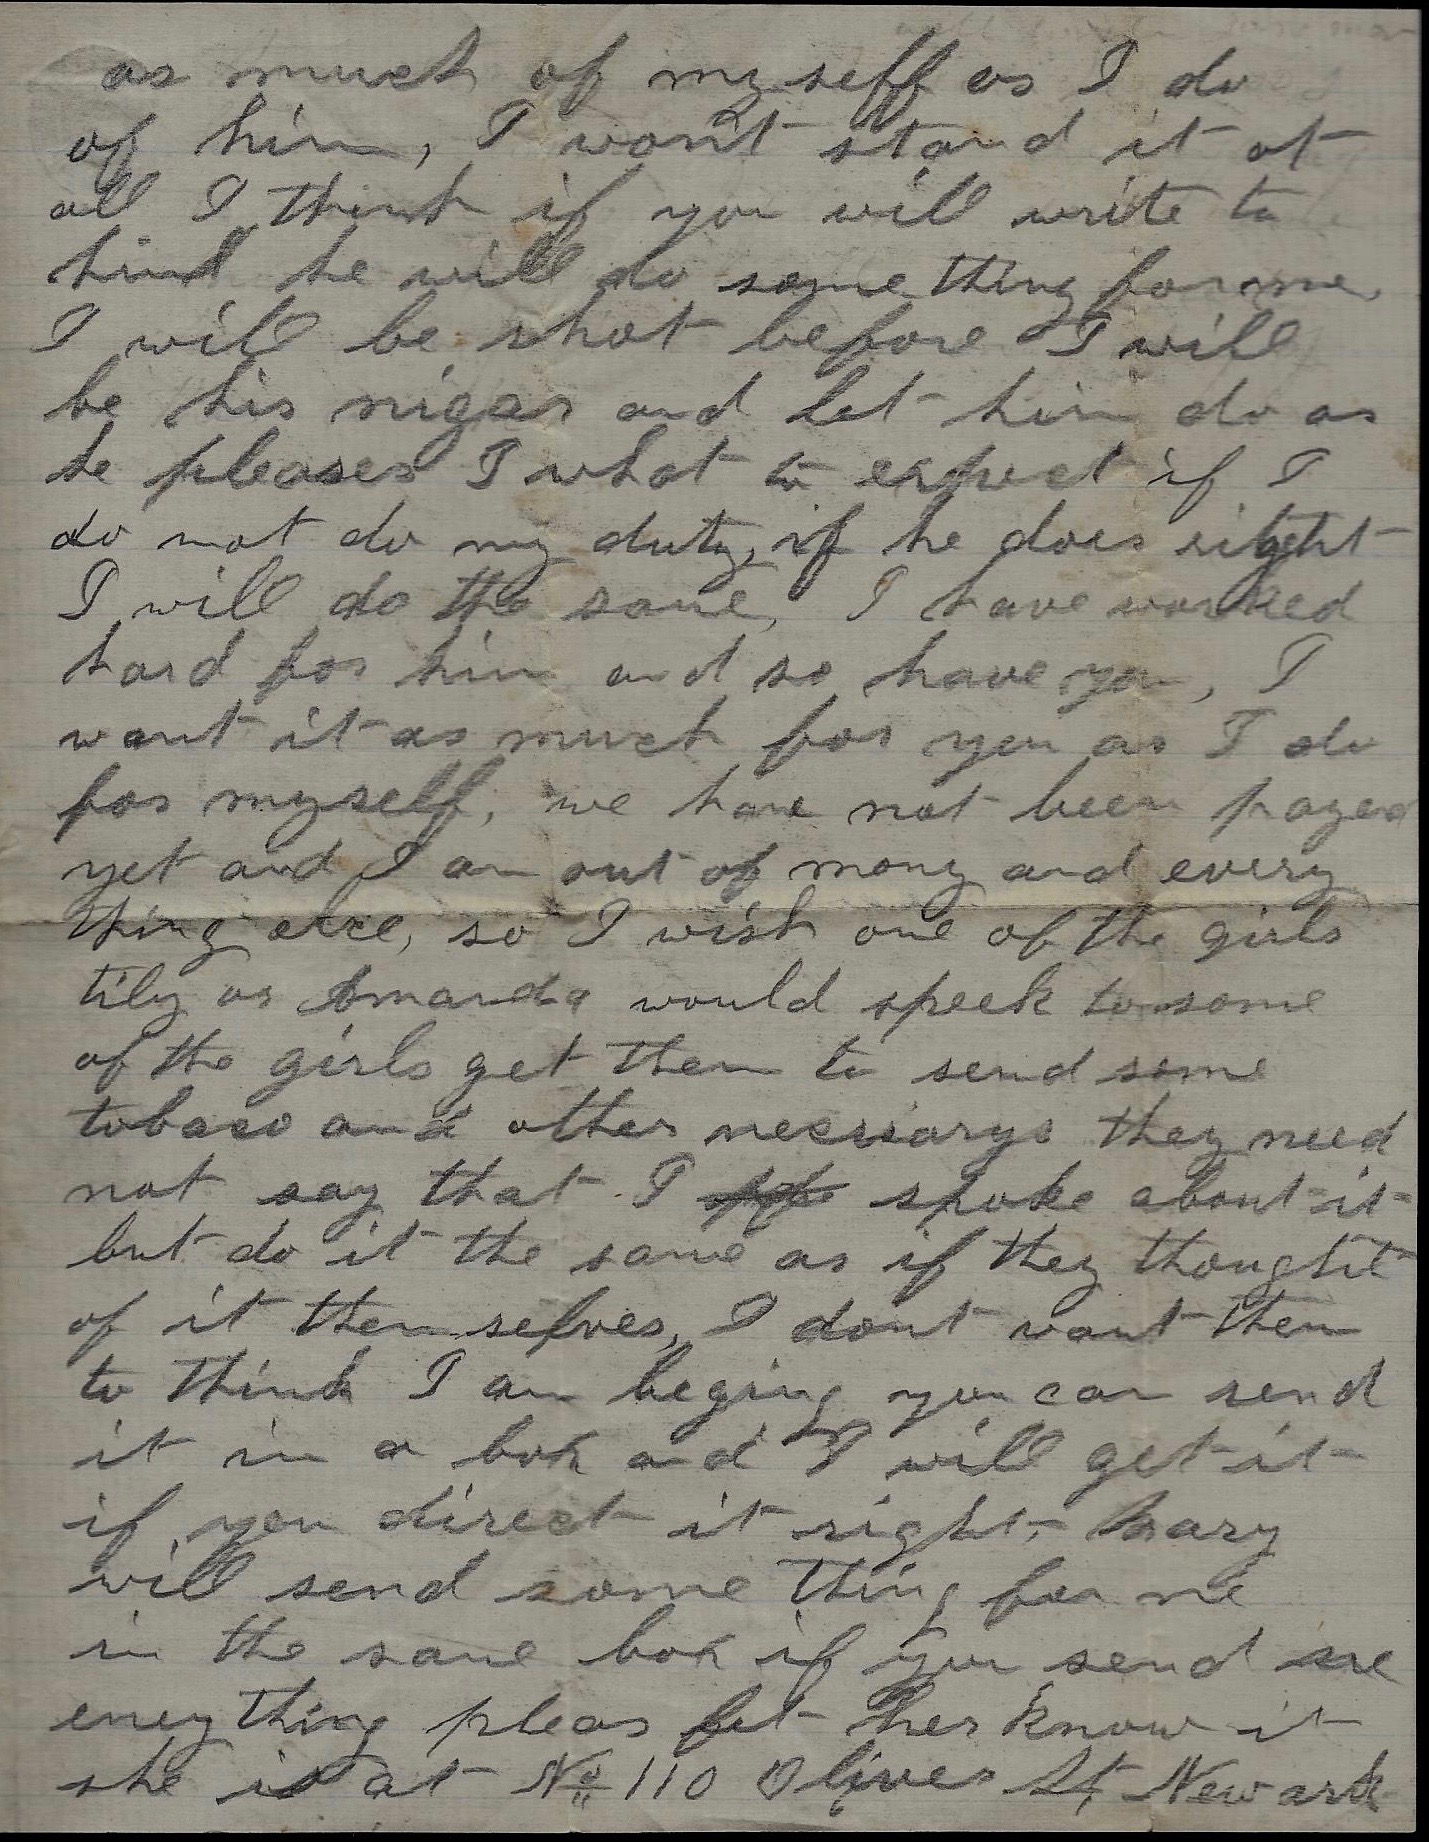 as much of my seff as I do
of him, I wont stand it at
all I think if you will write to
him he will do some thing for me,
I will be shot before I will
be his nigar and let him do as
he pleases I what to expect if I
do not do my duty, if he does right
I will do the same, I have worked
hard for him and so have you, I
want it as much for you as I do
for myself, we have not been payed
yet and I am out of mony and every
thing elce, so I wish one of the girls
tily or Amanda would speek to some
of the girls get them to send some
tobaco and other necissarys they need
not say that I spoke about it
but do it the same as if they thought
of it them selves, I dont want them
to think I am beging you can send
it in a box and I will get it
if you direct it right, Mary
will send some thing for me
in the same box if you send me
eney thing pleas let her know it
she is at No 110 Oliver St, Newark